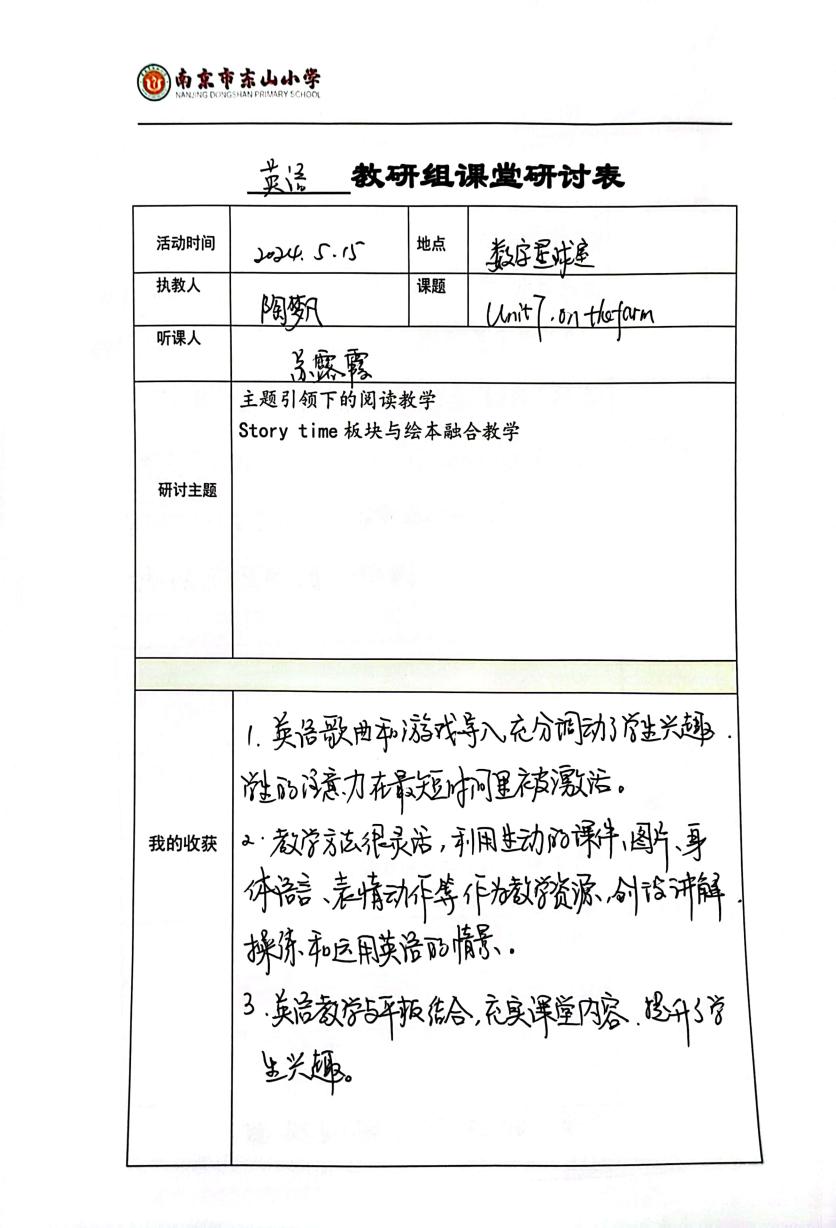 南京市东山小学
NANJING DONGSHAN PRIMARY SCHOOL
英语 教研组课堂研讨表
活动时间 2024.5.15 地点 数字星球室
执教人 陶梦凡 课题 Unit7.on the farm
听课人 苏露霞
主题引领下的阅读教学
Story time 板块与绘本融合教学
研讨主题
1. 英语歌曲和游戏导入充分调动了学生兴趣.
学生的注意力在最短时间里被激活。
我的收获
2. 教学方法很灵活,利用生动的课件、图片、身
体语言、表情动作等作为教学资源,创设讲解、
操练和运用英语的情景。
3.英语教学与平板结合,充实课堂内容.提升了学
生兴趣。